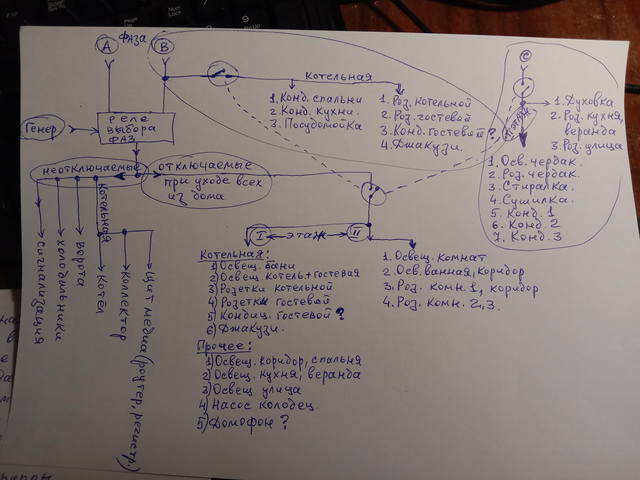 ФАЗА
A
B
C
КОТЕЛЬНАЯ
1. Конд. спальни
2. Конд. кухни.
3. Посудомойка
1. Роз. котельной
2. Роз. гостевой
3. Конд. Гостевой?
4. Джакузи.
III этаж
1. Духовка
2. Роз. кухня,
веранда
3. Роз. улица
1. Осв. чердак.
2. Роз. чердак.
3. Стиралка.
4. Сушилка.
5. Конд. 1
6. Конд. 2
7. Конд. 3
Генер
РЕЛЕ
ВЫБОРА
ФАЗ
неотключаемые
отключаемые
при уходе всех
из дома
сигнализация
холодильники
ворота
Котельная
Котёл
Коллектор
Щит медиа (роутер, регистр.)
I этаж II
Котельная:
1) Освещ. бани
2) Освещ. котель + гостевая
3) Розетки котельной
4) Розетки гостевой
5) Кондиц. гостевой?
6) Джакузи.
Прочее:
1) Освещ. коридор, спальня
2) Освещ. кухня, веранда
3) Освещ. улица
4) Насос колодец.
5) Домофон?
1. Освещ. комнат
2. Осв. ванная, коридор
3. Роз. комн. 1, коридор
4. Роз. комн. 2, 3.